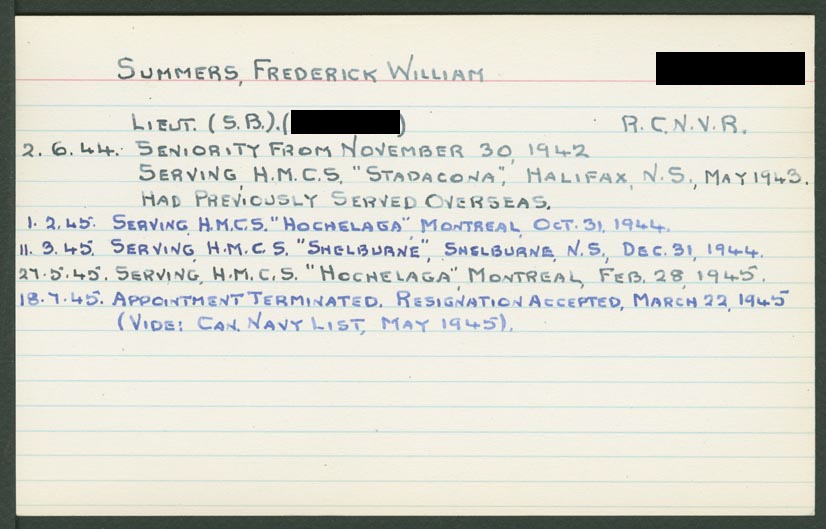 SUMMERS, FREDERICK WILLIAM
LIEUT. (S.B.). ( ) R.C.N.V.R.
2. 6. 44. SENIORITY FROM NOVEMBER 30, 1942
SERVING, H.M.C.S. "STADACONA", HALIFAX, N.S., MAY 1943.
HAD PREVIOUSLY SERVED OVERSEAS.
1. 2. 45. SERVING, H.M.C.S. "HOCHELAGA" MONTREAL, OCT. 31, 1944.
11. 3. 45. SERVING, H.M.C.S. "SHELBURNE", SHELBURNE, N.S., DEC. 31, 1944.
27. 5. 45. SERVING, H.M.C.S. "HOCHELAGA", MONTREAL, FEB. 28, 1945.
18. 7. 45. APPOINTMENT TERMINATED. RESIGNATION ACCEPTED, MARCH 22, 1945
(VIDE: CAN. NAVY LIST, MAY 1945).